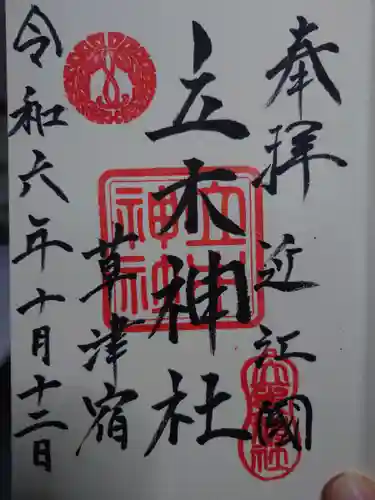 奉拝 近江國
立木神社
草津宿
令和六年十月十二日